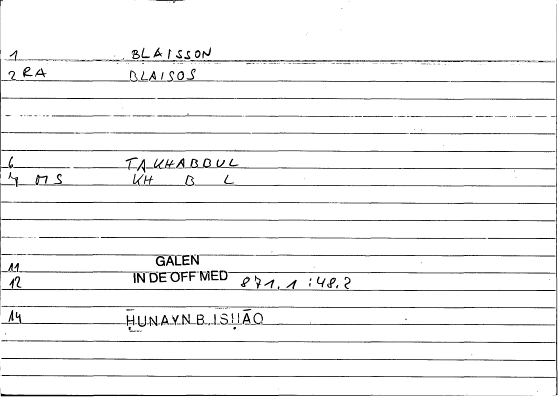 1 BLAISSON
2 RA BLAISOS
6 TAKHABBUL
4 MS KH B L
11 GALEN
12 IN DE OFF MED 871.1 :48.2
14 ḤUNAYN B. ISḤĀQ